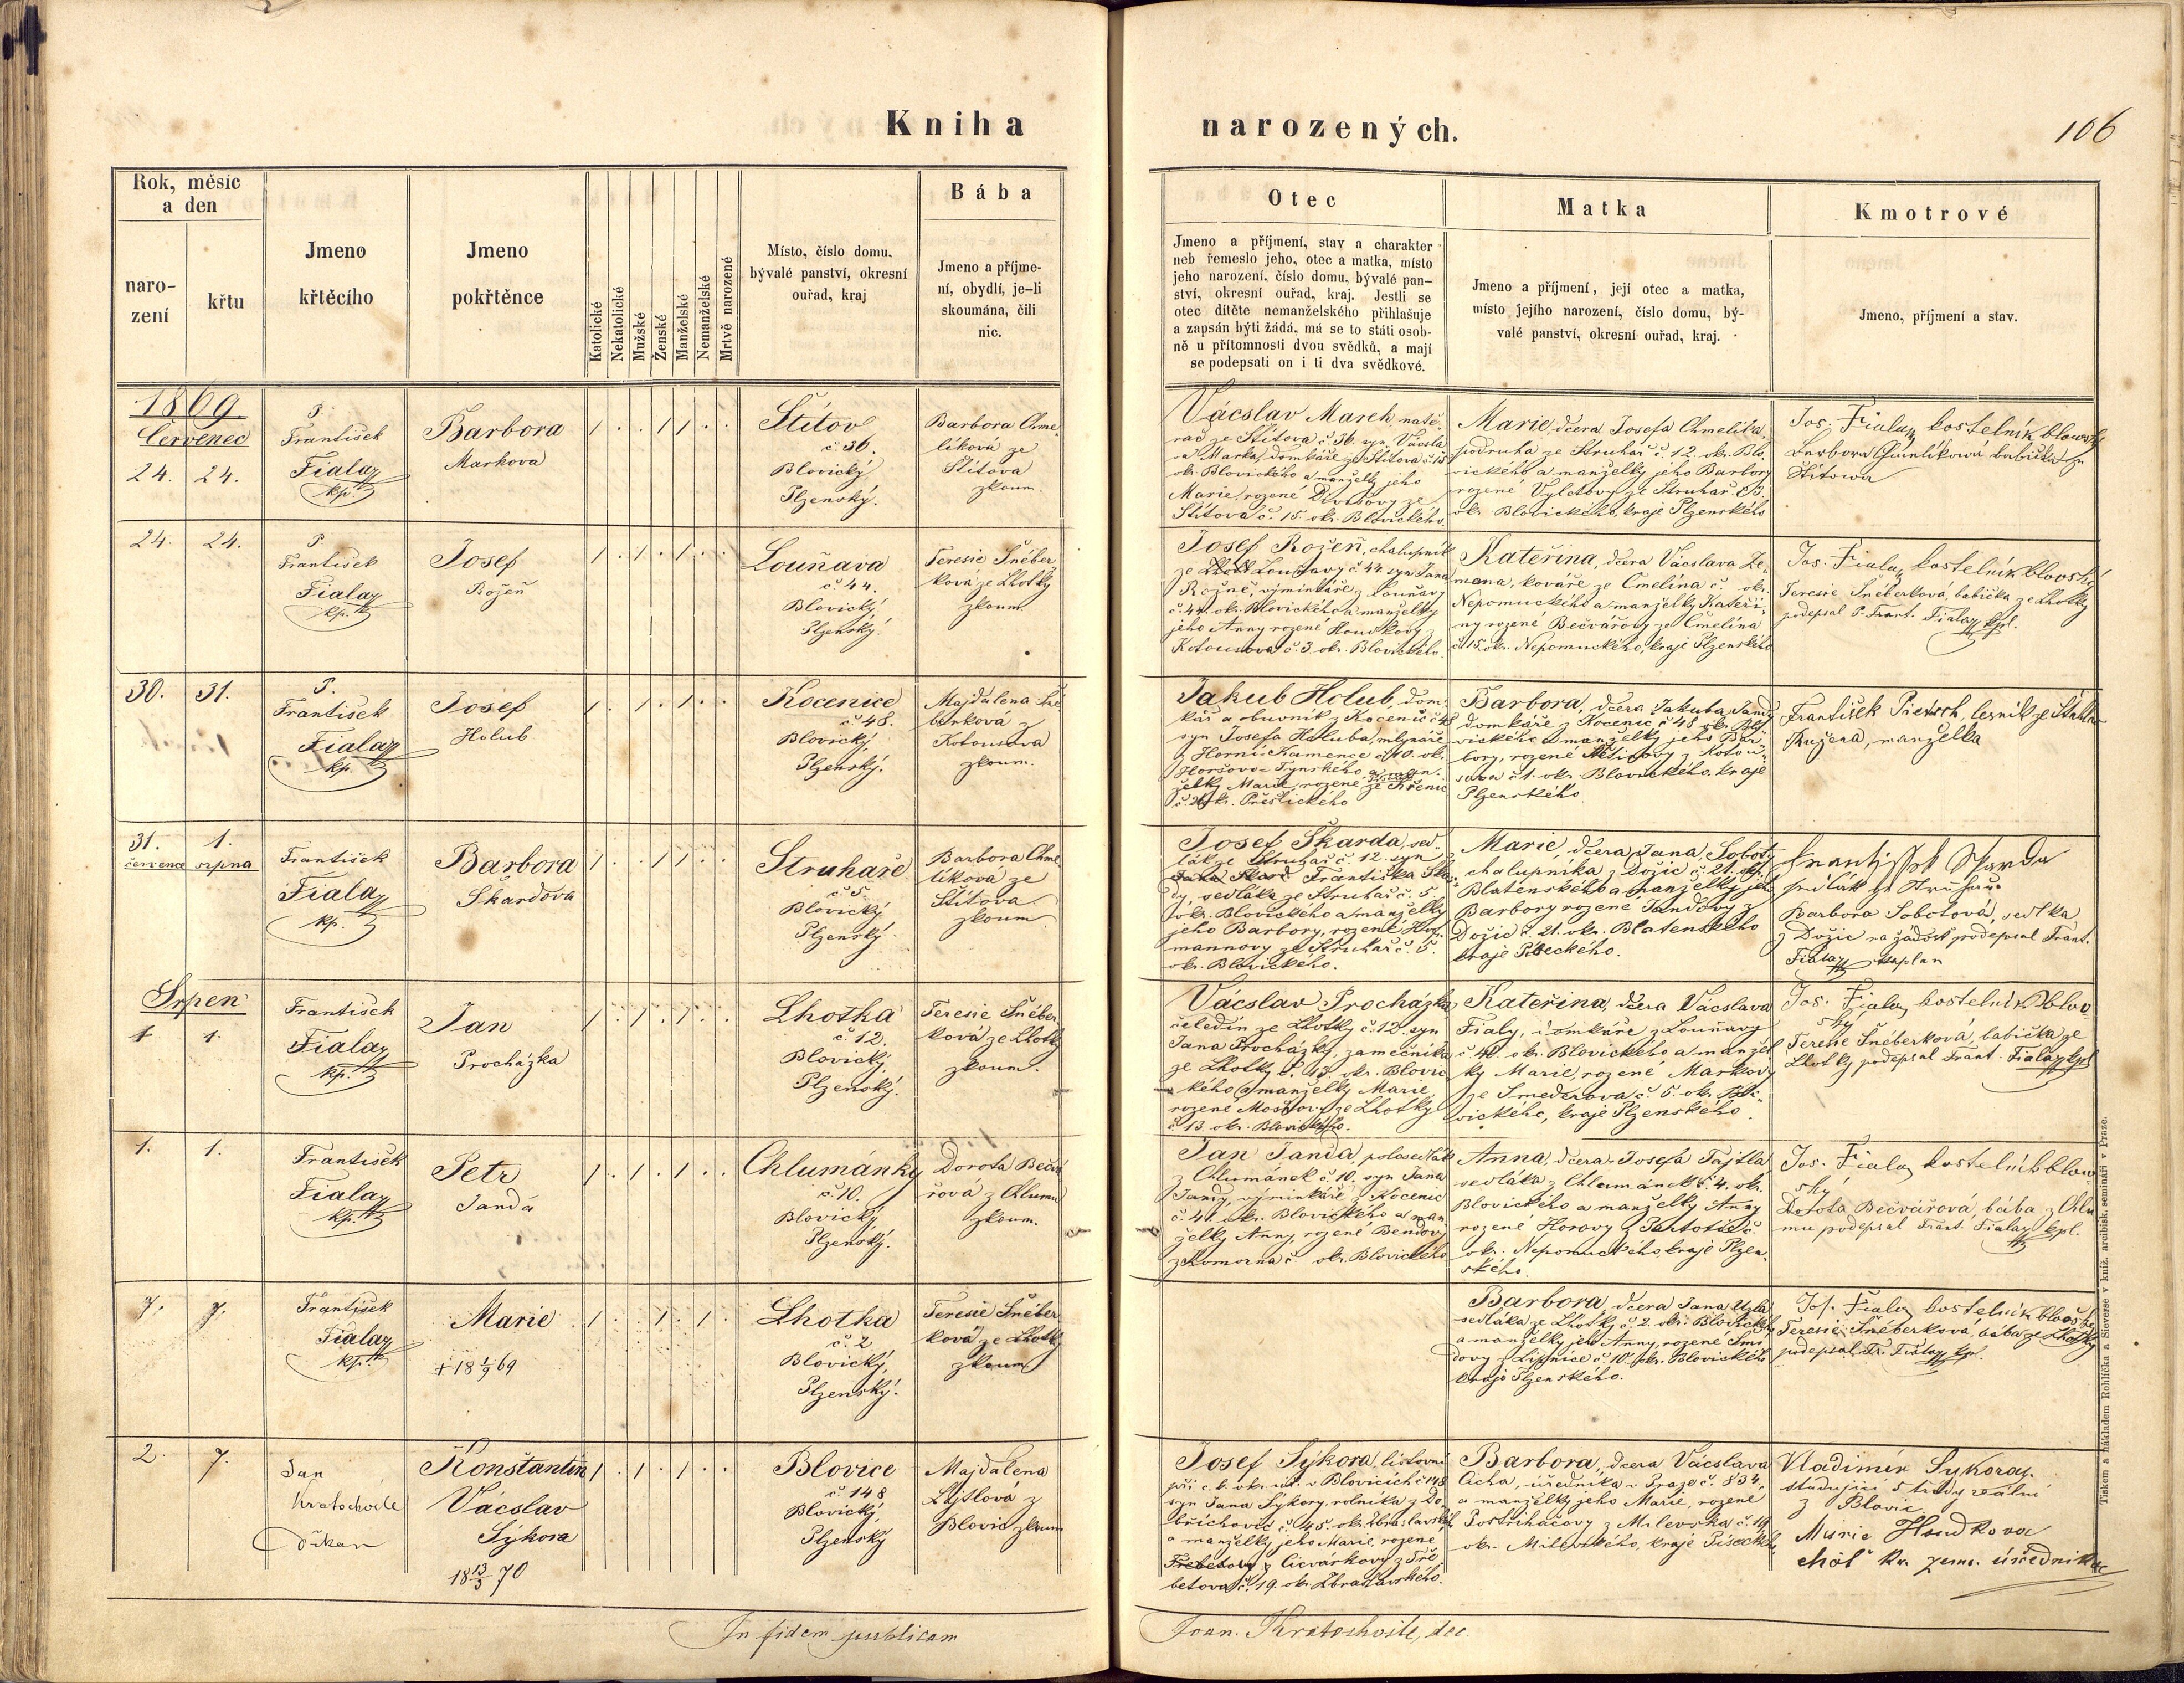 Kniha
narozených.
106
Rok, měsíc
a den
naro-
zení
křtu
Jmeno
křtěcího
Jmeno
pokřtěnce
Katolické
Nekatolické
Mužské
Ženské
Manželské
Nemanželské
Mrtvě narozené
Místo, číslo domu.
bývalé panství, okresní
ouřad, kraj
Bába
Jmeno a příjme-
ní, obydlí, je-li
skoumána, čili
nic.
Otec
Jmeno a příjmení, stav a charakter
neb řemeslo jeho, otec a matka, místo
jeho narození, číslo domu, bývalé pan-
ství, okresní ouřad, kraj. Jestli se
otec dítěte nemanželského přihlašuje
a zapsán býti žádá, má se to státi osob-
ně u přítomnosti dvou svědků, a mají
se podepsati on i ti dva svědkové.
Matka
Jmeno a příjmení, její otec a matka,
místo jejího narození, číslo domu, bý-
valé panství, okresní ouřad, kraj.
Kmotrové
Jmeno, příjmení a stav.
1869
Červenec
24. 24.
P.
František
Fiala
kp.
Barbora
Markova
Štítov
č. 36.
Blovický
Plzenský.
Barbora Chme-
líková ze
Štítova
zkoum.
Vácslav Marek
ze Štítova č. 36. syn Vácsla
va Marka, domkáře ze Štítova č. 15
okr. Blovického a manželky jeho
Marie, rozené Divišovy ze
Štítova č. 15. okr. Blovického.
Marie, dcera Josefa Chmelíka,
podruha ze Struhař č. 12. okr. Blo-
vického a manželky jeho Barbory
rozené Vyletovy ze Struhař č. 3.
okr. Blovického, kraje Plzenského
Jos. Fiala, kostelník blowský
Barbora Chmelíkowá babička ze
Štitowa
24. 24.
P.
František
Fiala
kp.
Josef
Rožeň
Louňava
č. 44.
Blovický
Plzenský.
Teresie Šnéber
ková ze Lhotky
zkoum.
Josef Rožeň, chalupník
ze Louňavy č. 44. syn Jana
Rožně, výminkáře z Louňavy
č. 44. okr. Blovického a manželky
jeho Anny rozené Houdkovy z
Kotousova č. 3. okr. Blovického.
Kateřina, dcera Vácslava Ze-
mana, kováře ze Čmelína č. okr.
Nepomuckého a manželky Kateři-
ny rozené Bečvářovy ze Čmelína
č. 15. okr. Nepomuckého, kraje Plzenského
Jos. Fiala, kostelník blovský
Teresie Šnéberková, babička ze Lhotky
podepsal P. Frant. Fiala kpl.
30. 31.
P.
František
Fiala
kp.
Josef
Holub
Kocenice
č. 48.
Blovický
Plzenský.
Majdalena Šné
berková z
Kotousova
zkoum.
Jakub Holub, dom-
kář a obuvník z Kocenic č. 48
syn Josefa Holuba, mlynáře
z Horní Kamence č. 10. ok.
Horšovo-Tynského a man-
želky Marie, rozené ze Křenic
č. 2. okr. Přeštického
Barbora, dcera Jakuba Jandy
domkáře z Kocenic č. 48 okr. Blo-
vického a manželky jeho Bar-
bory, rozené z Kotou-
sova č. 1. okr. Blovického, kraje
Plzenského.
František Pietsch, lesník ze
Ružena, manželka
31. 1.
července srpna
František
Fiala
kp.
Barbora
Skardova
Struhaře
č. 5.
Blovický
Plzenský.
Barbora Chme
líková ze
Štítova
zkoum.
Josef Škarda, sed-
lák ze Struhař č. 12. syn
Františka Škar-
dy, sedláka ze Struhař č. 5
okr. Blovického a manželky
jeho Barbory, rozené Hof-
mannovy ze Struhař č. 5.
okr. Blovického.
Marie, dcera Jana Soboty
chalupníka z Dožic č. 21. okr.
Blatenského a manželky jeho
Barbory rozené Jandovy z
Dožic č. 21. okr. Blatenského
kraje Píseckého.
Frantissek Skarda
sedlák ze Struhař
Barbora Sobotová, sedlka
z Dožic na žádost podepsal Frant.
Fiala kaplan
Srpen
1. 1.
František
Fiala
kp.
Jan
Procházka
Lhotka
č. 12.
Blovický,
Plzenský.
Teresie Šnéber
ková ze Lhotky
zkoum.
Vácslav Procházka
čeledín ze Lhotky č. 12. syn
Jana Procházky, zamečníka
ze Lhotky č. 13. okr. Blovic
kého a manželky Marie,
rozené ze Lhotky
č. 13. okr. Blovického.
Kateřina, dcera Vácslava
Fialy, domkáře z Louňavy
č. 42. okr. Blovického a manžel
ky Marie, rozené Markovy
ze Smederova č. 5. okr. Blo-
vického, kraje Plzenského.
Jos. Fiala, kostelník blov
ský
Teresie Šnéberková, babička ze
Lhotky podepsal Frant. Fiala kpl
1. 1.
František
Fiala
kp.
Petr
Janda
Chlumánky
č. 10.
Blovický,
Plzenský.
Dorota Bečvá
řová z Chlumu
zkoum.
Jan Janda, polosedlák
z Chlumánek č. 10. syn Jana
Jandy, výminkáře z Kocenic
č. 41. okr. Blovického a man
želky Anny, rozené Bendovy
z Komorna č. okr. Blovického
Anna, dcera Josefa Tajtla
sedláka z Chlumánek č. 4. okr.
Blovického a manželky Anny
rozené Horovy z č.
okr. Nepomuckého, kraje Plzen-
ského.
Jos. Fiala kostelník blow
ský
Dorota Bečvářová, bába z Chlu
mu podepsal Frant. Fiala kpl.
7. 7.
František
Fiala
kp.
Marie
+ 18 1/9 69
Lhotka
č. 2
Blovický,
Plzenský.
Teresie Šnéber
ková ze Lhotky
zkoum
Barbora, dcera Jana
sedláka ze Lhotky č. 2. okr. Blovického
a manželky jeho Anny, rozené
dovy z Lipnice č. 10. okr. Blovického
kraje Plzenského.
Jos. Fiala kostelník blovský
Teresie Šnéberková, bába ze Lhotky
podepsal Fr. Fiala kpl.
2. 7.
Jan
Kratochvile
děkan
Konštantin
Vácslav
Sýkora
18 13/3 70
Blovice
č. 148
Blovický,
Plzenský
Majdalena
Lajtlová z
Blovic zkoum
Josef Sýkora, listovní
při c. k. okr. úř. v Blovicích č. 148
syn Jana Sýkory, rolníka z Do-
břichovic č. 45. okr. Zbraslavského
a manželky jeho Marie, rozené
Civárkovy z Tře
betova č. 19. okr. Zbraslavského.
Barbora, dcera Vácslava
Cicha, úředníka v Praze č. 834,
a manželky jeho Marie, rozené
Postřihačovy z Milevska č. 14
okr. Milevského, kraje Píseckého.
Vladimír Sykora
študující 5 třídy reální
z Blovic
Marie Houdkova
choť kr. zem. úředníka
In fidem publicam
Joan. Kratochvile, dec.
Tiskem a nákladem Rohlíčka a Sieverse v kníž. arcibisk. semináři v Praze.